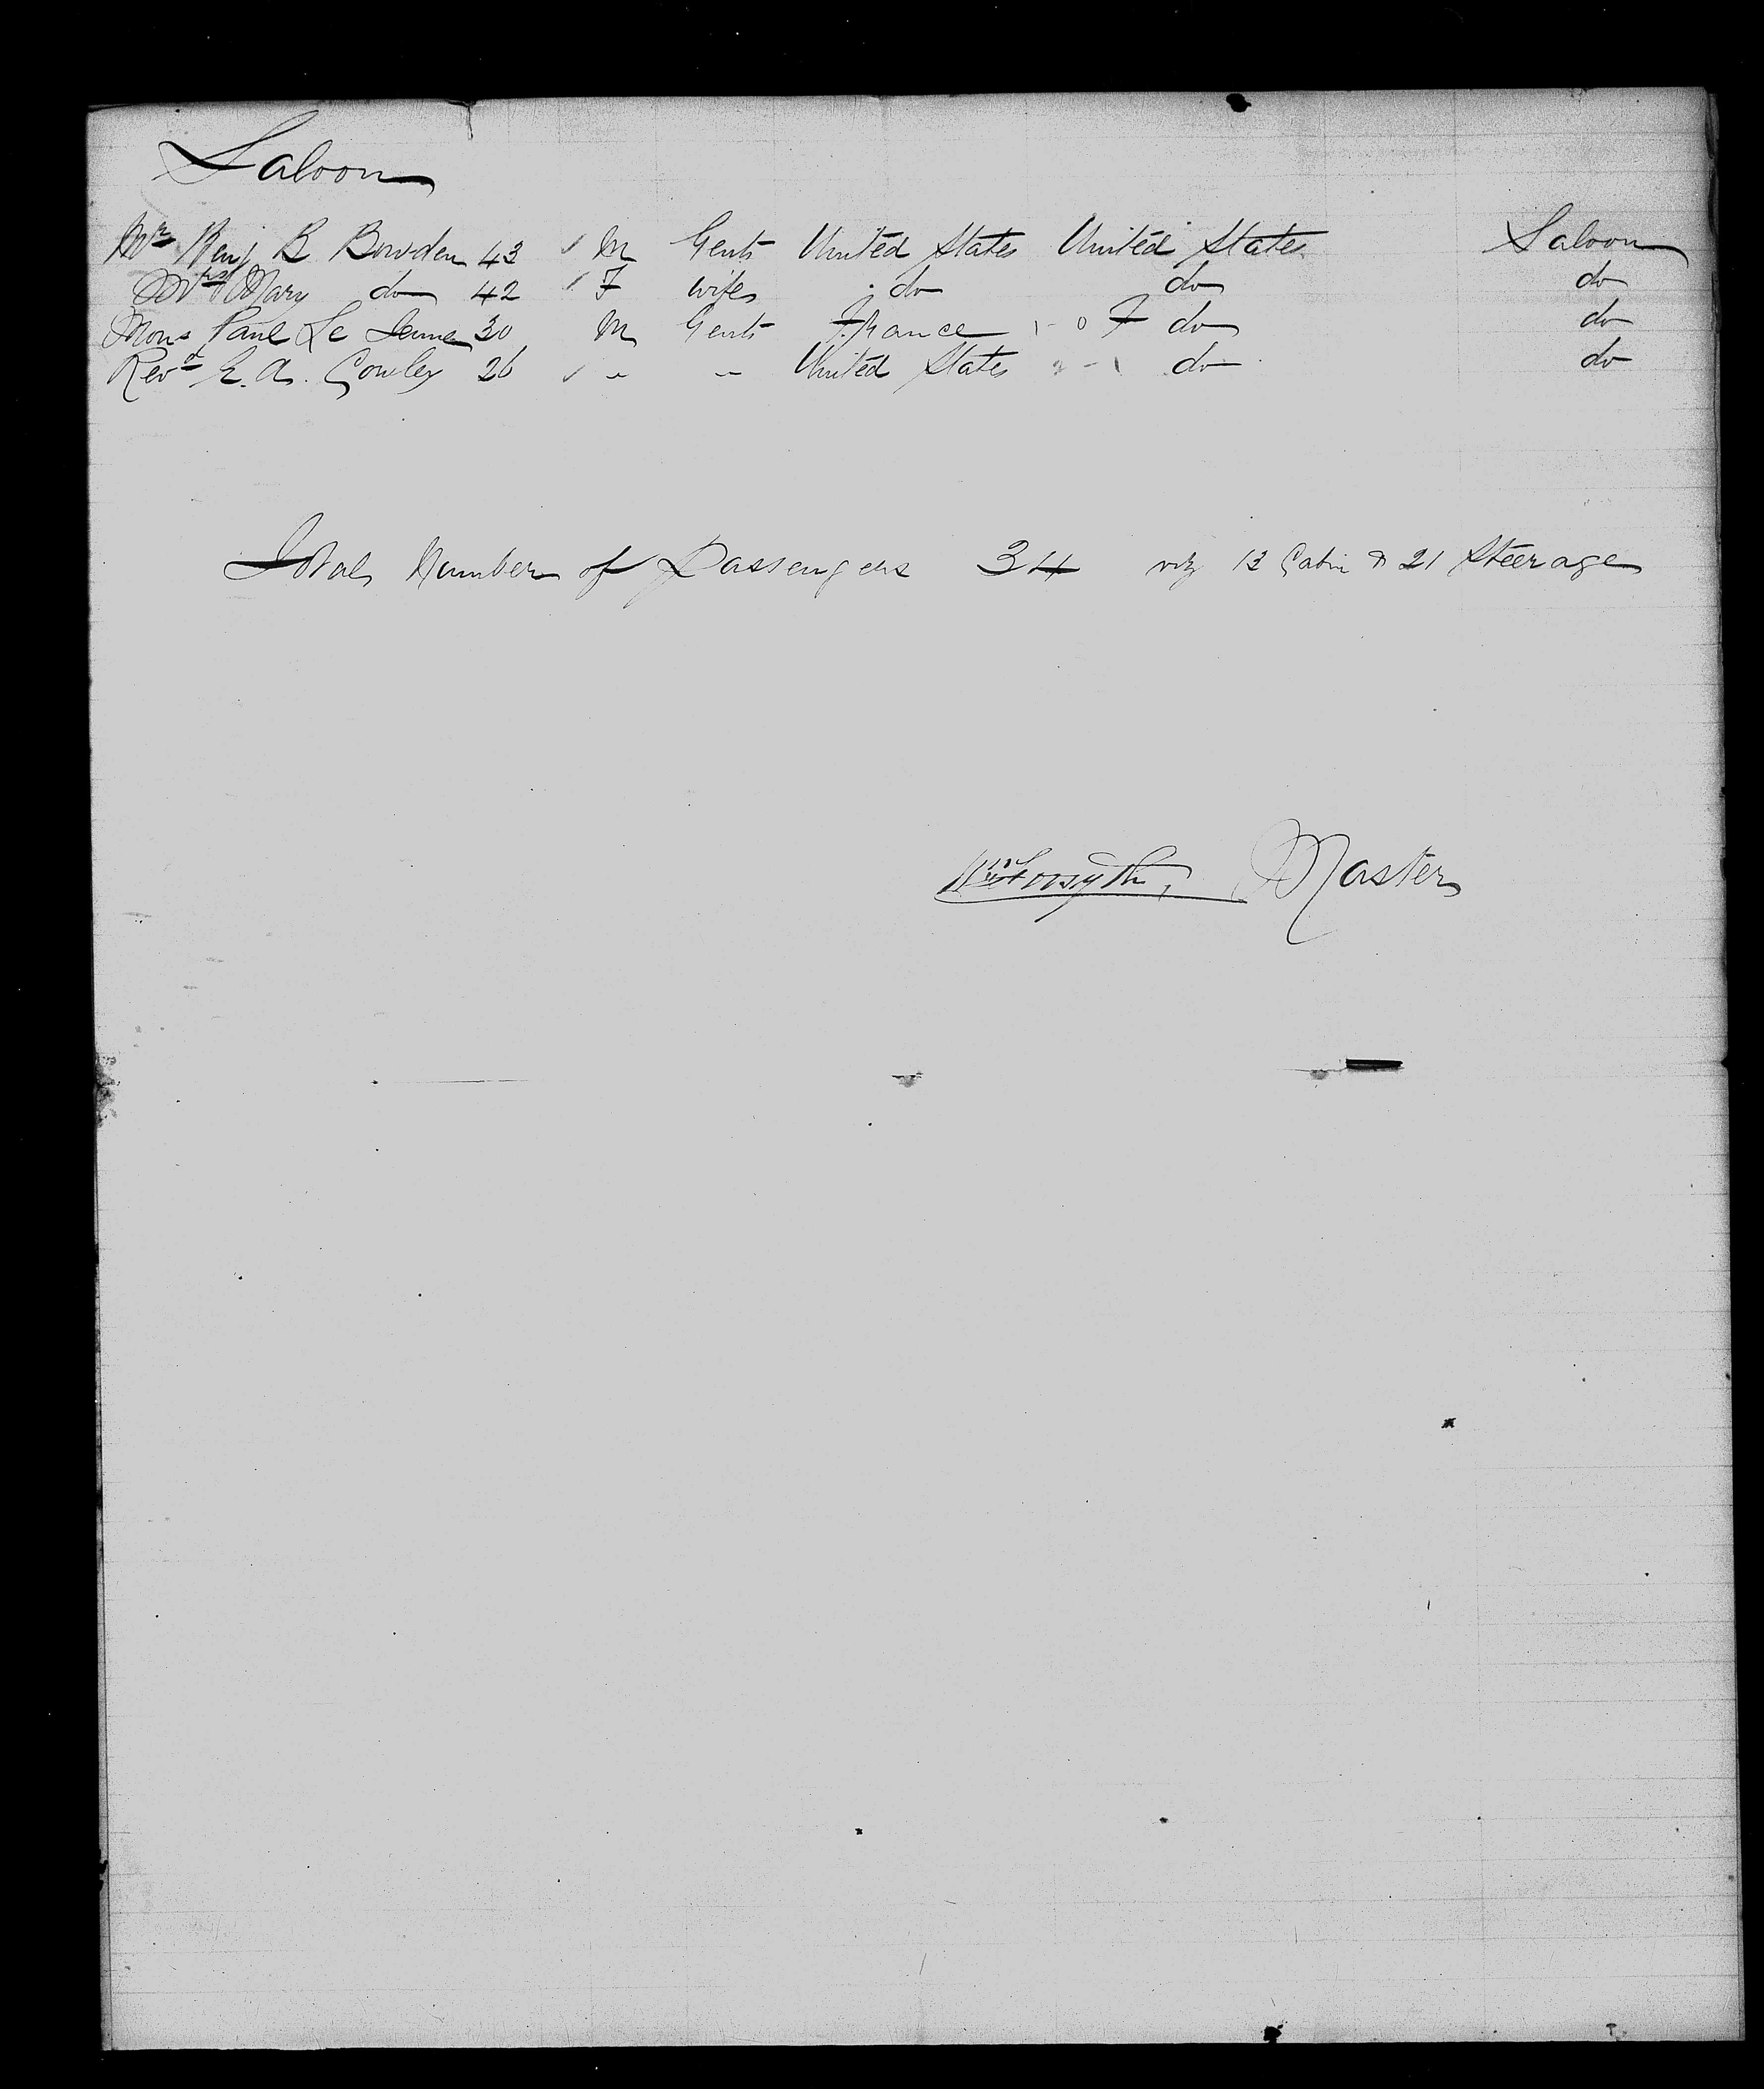 Saloon
Mr Benj B Bowden 43 M Gent United States United States Saloon
Mrs Mary do 42 F wife do do do
Mons Paul Le Jeune 30 M Gent France 1-0 F do do
Revd E. A. Cowley 26 " " United States do do
Total Number of Passengers 34 viz 13 Cabin & 21 Steerage
Wm Forsyth, Master